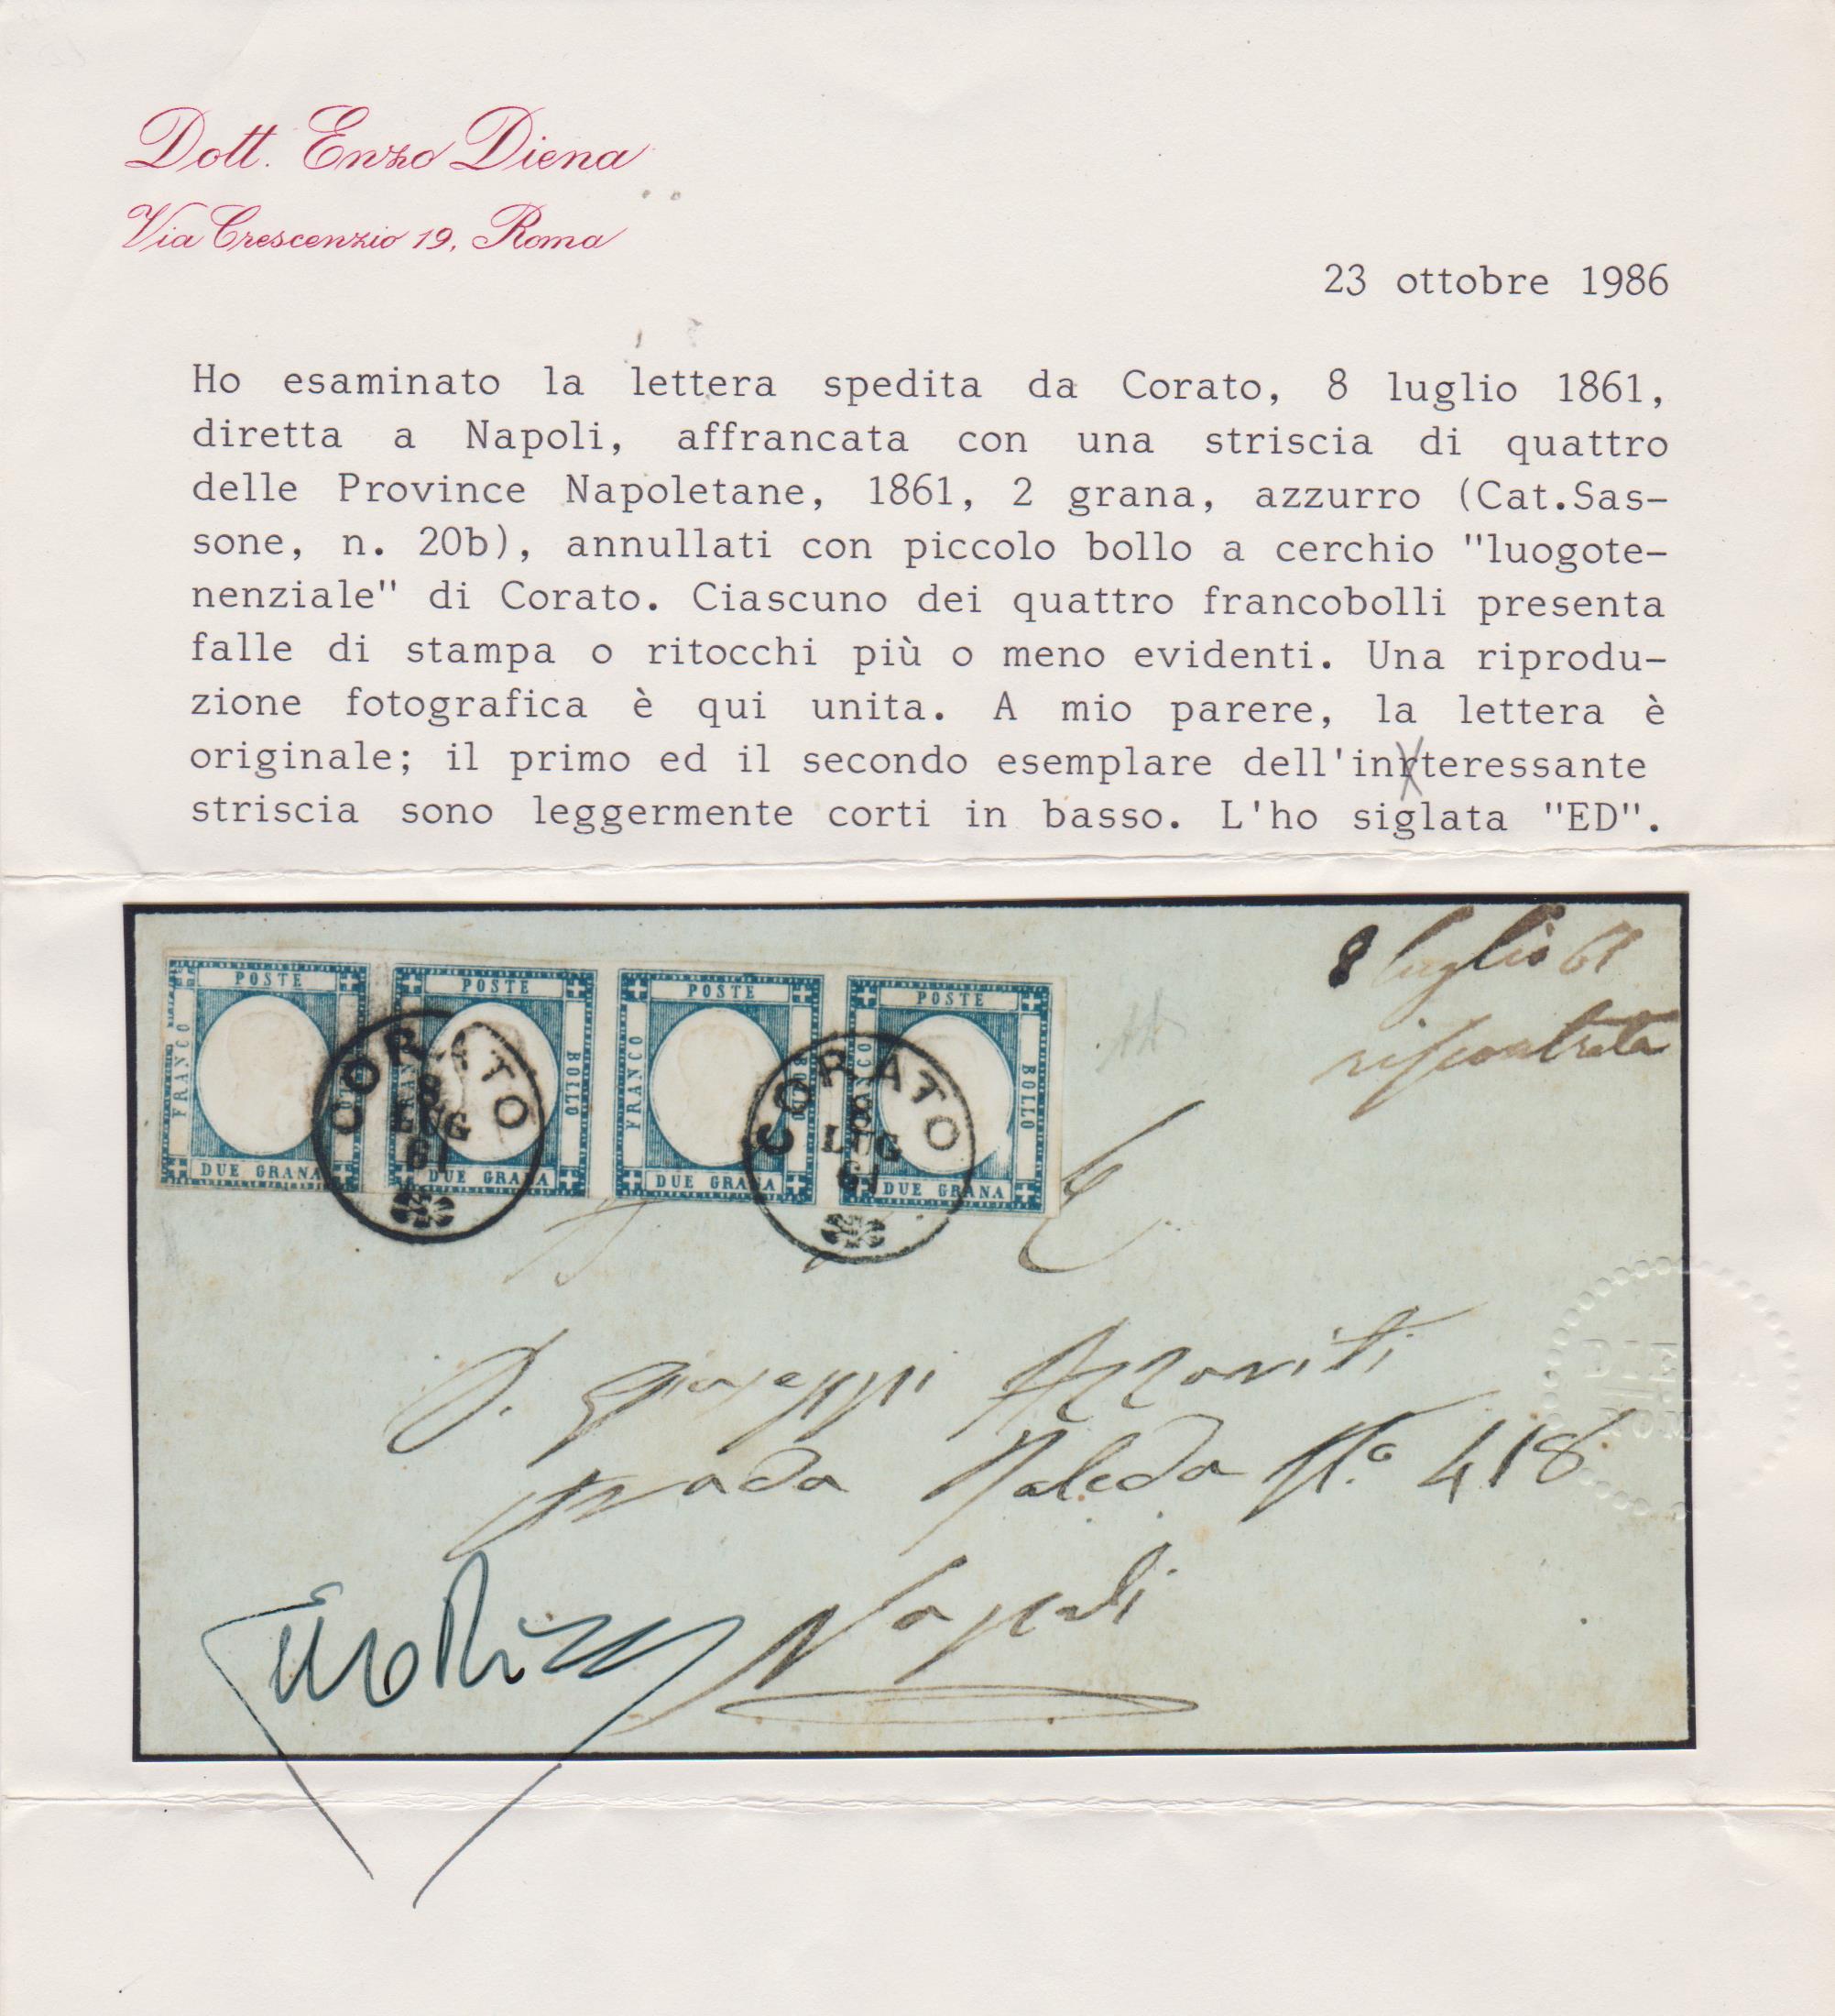 Dott. Enzo Diena
Via Crescenzio 19, Roma
23 ottobre 1986
Ho esaminato la lettera spedita da Corato, 8 luglio 1861,
diretta a Napoli, affrancata con una striscia di quattro
delle Province Napoletane, 1861, 2 grana, azzurro (Cat.Sas-
sone, n. 20b), annullati con piccolo bollo a cerchio "luogote-
nenziale" di Corato. Ciascuno dei quattro francobolli presenta
falle di stampa o ritocchi più o meno evidenti. Una riprodu-
zione fotografica è qui unita. A mio parere, la lettera è
originale; il primo ed il secondo esemplare dell'interessante
striscia sono leggermente corti in basso. L'ho siglata "ED".
8 luglio 61
riscontrata
POSTE
FRANCO
BOLLO
DUE GRANA
POSTE
FRANCO
BOLLO
DUE GRANA
POSTE
FRANCO
BOLLO
DUE GRANA
POSTE
FRANCO
BOLLO
DUE GRANA
CORATO
8
LUG
61
CORATO
8
LUG
61
D. Giuseppi Azzariti
strada Toledo N.º 418
Napoli